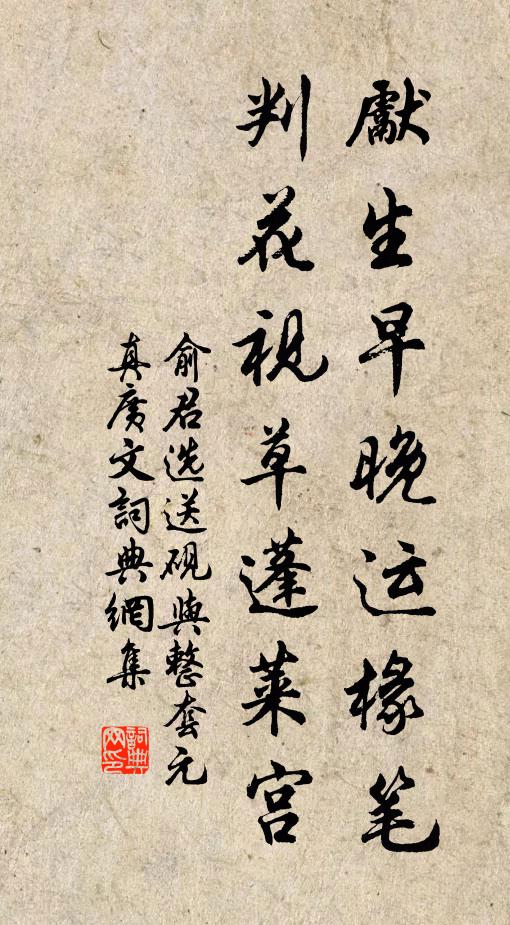 獻生早晚运椽笔
判花視草蓬萊宫
俞君选送砚與整套元
真广文詞典網集
詞典
网印